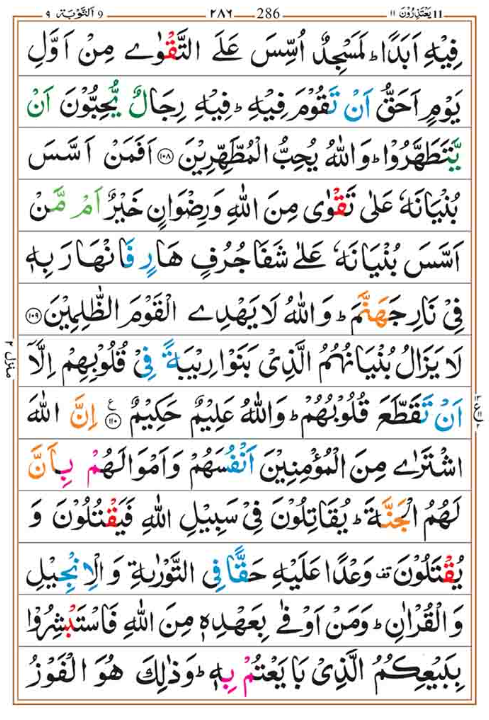 ۱۱ يَعْتَذِرُوْنَ 11 286 ۲۸۶ اَلتَّوْبَة 9 ۹
فِيْهِ اَبَدًا ؕ لَمَسْجِدٌ اُسِّسَ عَلَى التَّقْوٰى مِنْ اَوَّلِ
يَوْمٍ اَحَقُّ اَنْ تَقُوْمَ فِيْهِ ؕ فِيْهِ رِجَالٌ يُّحِبُّوْنَ اَنْ
يَّتَطَهَّرُوْا ؕ وَاللّٰهُ يُحِبُّ الْمُطَّهِّرِيْنَ ﴿۱۰۸﴾ اَفَمَنْ اَسَّسَ
بُنْيَانَهٗ عَلٰى تَقْوٰى مِنَ اللّٰهِ وَرِضْوَانٍ خَيْرٌ اَمْ مَّنْ
اَسَّسَ بُنْيَانَهٗ عَلٰى شَفَا جُرُفٍ هَارٍ فَانْهَارَ بِهٖ
فِيْ نَارِ جَهَنَّمَ ؕ وَاللّٰهُ لَا يَهْدِى الْقَوْمَ الظّٰلِمِيْنَ ﴿۱۰۹﴾
لَا يَزَالُ بُنْيَانُهُمُ الَّذِيْ بَنَوْا رِيْبَةً فِيْ قُلُوْبِهِمْ اِلَّاۤ
اَنْ تَقَطَّعَ قُلُوْبُهُمْ ؕ وَاللّٰهُ عَلِيْمٌ حَكِيْمٌ ﴿۱۱۰﴾ ع اِنَّ اللّٰهَ
اشْتَرٰى مِنَ الْمُؤْمِنِيْنَ اَنْفُسَهُمْ وَاَمْوَالَهُمْ بِاَنَّ
لَهُمُ الْجَنَّةَ ؕ يُقَاتِلُوْنَ فِيْ سَبِيْلِ اللّٰهِ فَيَقْتُلُوْنَ وَ
يُقْتَلُوْنَ ۫ وَعْدًا عَلَيْهِ حَقًّا فِى التَّوْرٰىةِ وَالْاِنْجِيْلِ
وَالْقُرْاٰنِ ؕ وَمَنْ اَوْفٰى بِعَهْدِهٖ مِنَ اللّٰهِ فَاسْتَبْشِرُوْا
بِبَيْعِكُمُ الَّذِيْ بَايَعْتُمْ بِهٖ ؕ وَذٰلِكَ هُوَ الْفَوْزُ
منزل ۲